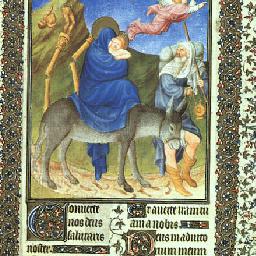 Converte
nos deus
salutaris
noster.
Et averte iram tu
am a nobis
Deus in adiuto
rium meum